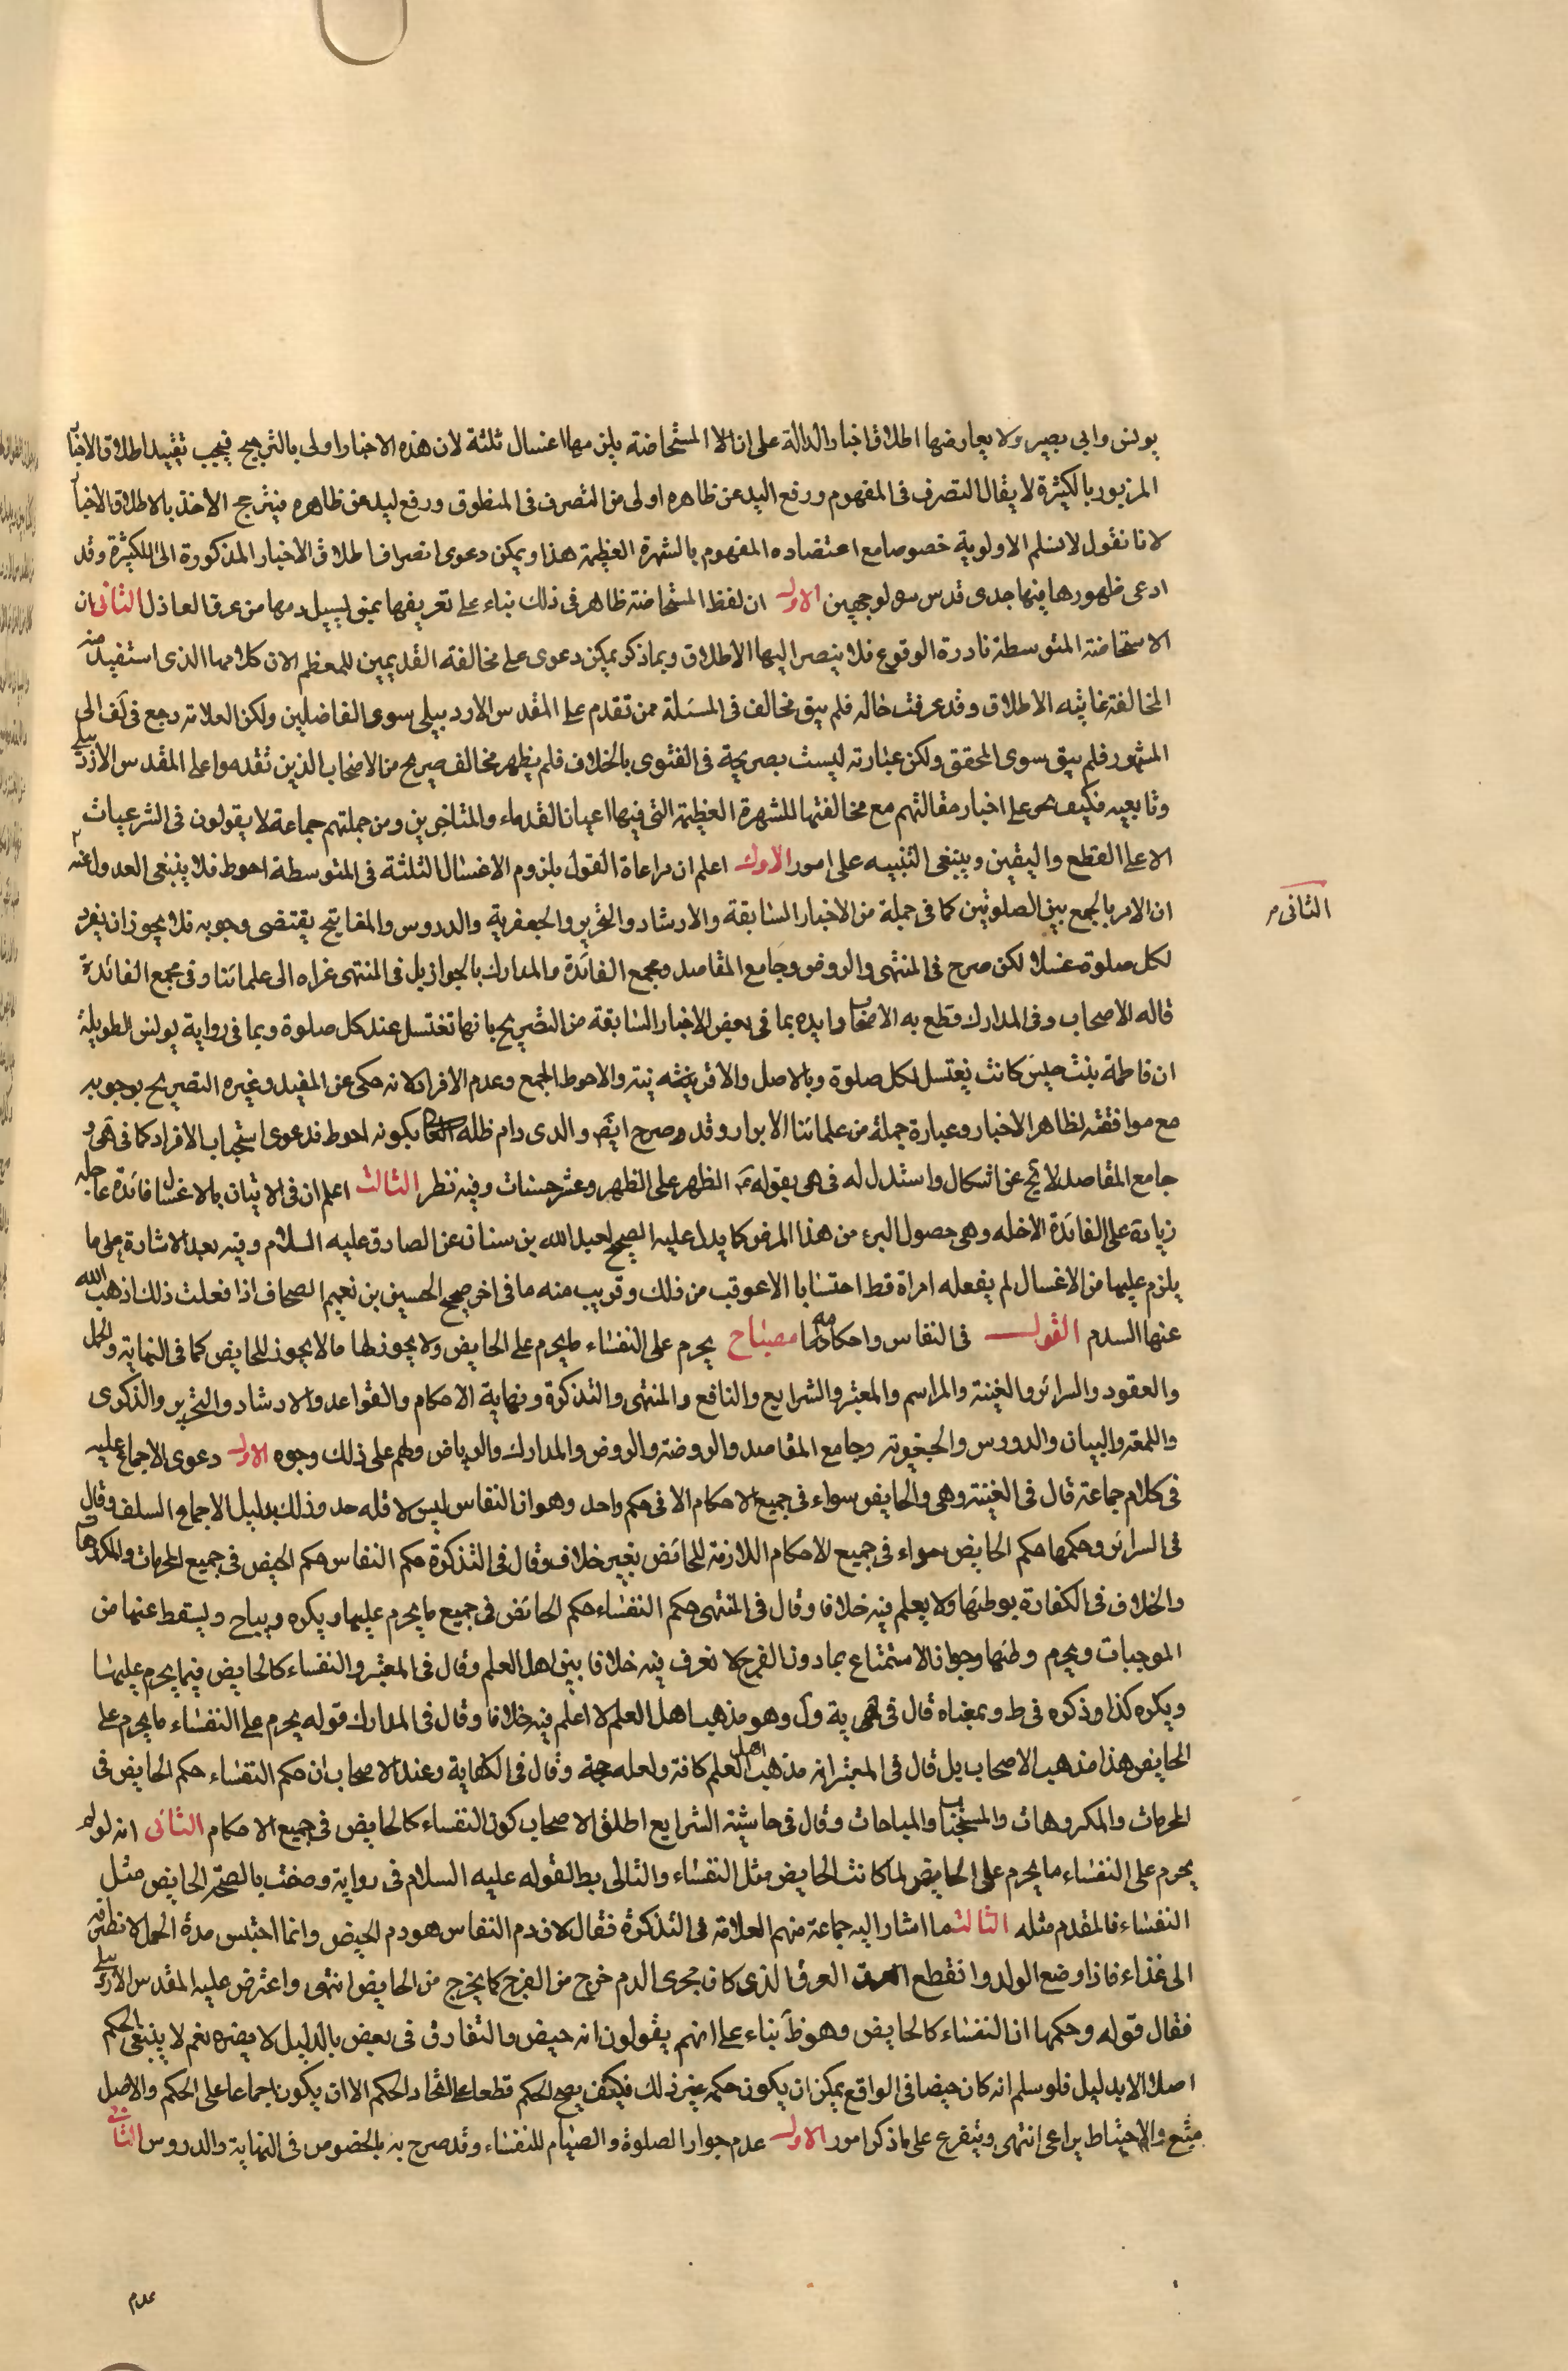 يونس وابي بصير ولا يعارضها اطلاق اخبار الدالة على ان الا المستحاضة يلزمها اغسال ثلثة لان هذه الاخبار اولى بالترجيح فيجب تقييد اطلاق الاخبا
المزبور بالكثيرة لا يقال التصرف في المفهوم ورفع اليد عن ظاهره اولى من التصرف في المنطوق ورفع ليد عن ظاهره فيترجح الاخذ بالاطلاق الاخبا
لانا نقول لا نسلم الاولوية خصوصا مع اعتضاده المفهوم بالشهرة العظيمة هذا ويمكن دعوى انصراف اطلاق الاخبار المذكورة الى الكثيرة وقد
ادعى ظهورها فيها جدى قدس سره لوجهين الاول ان لفظ المستحاضة ظاهر في ذلك بناء على تعريفها بمن يسيل دمها من عرق العاذل الثاني ان
الاستحاضة المتوسطة نادرة الوقوع فلا ينصر اليها الاطلاق وبما ذكر يمكن دعوى على مخالفة القديمين للمعظم الان كلامهما الذى استفيد منه
المخالفة غايته الاطلاق وقد عرفت حاله فلم يبق مخالف في المسئلة ممن تقدم على المقدس الاردبيلى سوى الفاضلين ولكن العلامة رجع في لف الى
المشهور فلم يبق سوى المحقق ولكن عبارته ليست بصريحة في الفتوى بالخلاف فلم يظهر مخالف صريح من الاصحاب الذين تقدموا على المقدس الاردبيلى
وتابعيه فكيف على اخبار مقالتهم مع مخالفتها للشهرة العظيمة التى فيها اعيان القدماء والمتاخرين ومن جملتهم جماعة لا يقولون في الشرعيات
الا على القطع واليقين وينبغى التنبيه على امور الاول اعلم ان مراعاة القول بلزوم الاغسال الثلثة في المتوسطة احوط فلا ينبغى العدول عنه
الثانى
ان الامر بالجمع بين الصلوتين كما في جملة من الاخبار السابقة والارشاد والتحرير والجعفرية والدروس والمفاتيح يقتضى وجوبه فلا يجوز ان يفرد
لكل صلوة غسلا لكن صرح في المنتهى والروض وجامع المقاصد ومجمع الفائدة والمدارك بالجواز بل في المنتهى عزاه الى علمائنا وفي مجمع الفائدة
قاله الاصحاب وفي المدارك قطع به الاصحاب وايده بما في بعض الاخبار السابقة من التصريح بانها تغتسل عند كل صلوة وبما في رواية يونس الطويلة
ان فاطمة بنت حبيش كانت تغتسل لكل صلوة وبالاصل والاقربية والاحوط الجمع وعدم الافراد لانه حكى عن المفيد وغيره التصريح بوجوبه
مع موافقته لظاهر الاخبار وعبارة جملة من علمائنا الابرار وقد صرح ايضا والدى دام ظله بكونه احوط فدعوى استحباب الافراد كما في هى و
جامع المقاصد لا تخ عن اشكال واستدل له في هى بقوله الطهر على الطهر وعشر حسنات وفيه نظر الثالث اعلم ان في الاتيان بالاغسال فائدة عاجله
زيادة على الفائدة الاخله وهى حصول البرء من هذا المرض كما يدل عليه الصحيح لعبد الله بن سنان عن الصادق عليه السلام وفيه بعد الاشارة على ما
يلزم عليها من الاغسال لم يفعله امراة قط احتسابا الا عوقب من ذلك وقريب منه ما في اخر صحيح الحسين بن نعيم الصحاف اذا فعلت ذلك اذهب الله
عنها السدم القول في النفاس واحكامها مصباح يحرم على النفساء ما يحرم على الحايض ولا يجوز لها ما لا يجوز للحايض كما في النهاية والجمل
والعقود والسرائر والغنية والمراسم والمعتبر والشرايع والنافع والمنتهى والتذكرة ونهاية الاحكام والقواعد والارشاد والتحرير والذكرى
واللمعة والبيان والدروس والجعفرية وجامع المقاصد والروضة والروض والمدارك والرياض ولهم على ذلك وجوه الاول دعوى الاجماع عليه
في كلام جماعة قال في الغنية وهى والحايض سواء في جميع الاحكام الا في حكم واحد وهو ان النفاس ليس لاقله حد وذلك بدليل الاجماع السلف وقال
في السرائر وحكمها حكم الحايض سواء في جميع الاحكام اللازمة للحائض بغير خلاف وقال في التذكرة حكم النفاس حكم الحيض في جميع المحرمات والمكروهات
والخلاف في الكفارة بوطئها ولا يعلم فيه خلافا وقال في المنتهى حكم النفساء حكم الحائض في جميع ما يحرم عليها ويكره ويباح ويسقط عنها من
الموجبات ويحرم وطئها وجواز الاستمتاع بما دون الفرج لا نعرف فيه خلافا بين اهل العلم وقال في المعتبر والنفساء كالحايض فيما يحرم عليها
ويكره كذا وذكره في ط وبمعناه قال في ية ول وهو مذهب اهل العلم لا اعلم فيه خلافا وقال في المدارك قوله يحرم على النفساء ما يحرم على
الحايض هذا مذهب الاصحاب بل قال في المعتبر انه مذهب اهل العلم كافة ولعله حجة وقال في الكفاية وعند الاصحاب ان حكم النفساء حكم الحايض في
المحرمات والمكروهات والمستحبات والمباحات وقال في حاشية الشرايع اطلق الاصحاب كون النفساء كالحايض في جميع الاحكام الثانى انه لو لم
يحرم على النفساء ما يحرم على الحايض لما كانت الحايض مثل النفساء والتالى بط لقوله عليه السلام في رواية وصفت بالصحة الحايض مثل
النفساء فالمقدم مثله الثالث ما اشار اليه جماعة منهم العلامة في التذكرة فقال لان دم النفاس هو دم الحيض وانما احتبس مدة الحمل
الى غذاء فاذا وضع الولد وانقطع العرق الذى كان مجرى الدم خرج من الفرج كما يخرج من الحايض انتهى واعترض عليه المقدس الاردبيلى
فقال قوله وحكمها ان النفساء كالحايض وهو ظ بناء على انهم يقولون انه حيض والتفارق في بعض بالدليل لا يضره نعم لا ينبغى الحكم
اصلا الا بدليل فلو سلم انه كان حيضا في الواقع يمكن ان يكون حكمه غير ذلك فكيف يصح الحكم قطعا على اتحاد الحكم الا ان يكون اجماعا على الحكم والاصل
متبع والاحتياط يراعى انتهى ويتفرع على ما ذكر امور الاول عدم جواز الصلوة والصيام للنفساء وقد صرح به بالخصوص في النهاية والدروس الثانى
عدم